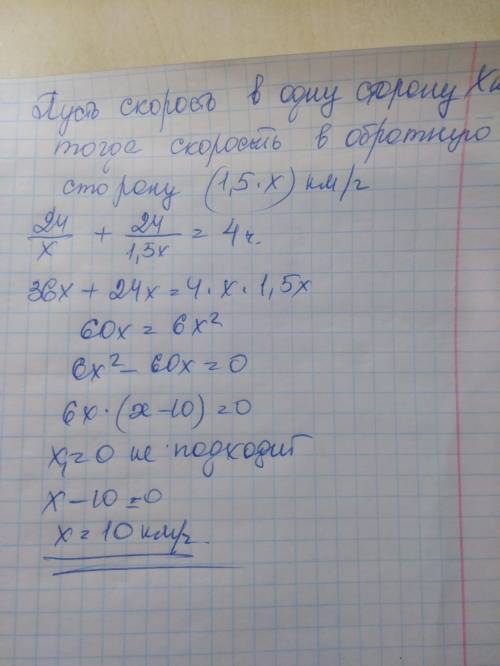 Пусть скорость в одну сторону х
тогда скорость в обратную
сторону (1,5·х) км/ч
24/х + 24/1,5х = 4 ч.
36х + 24х = 4·х·1,5х
60х = 6х²
6х² – 60х = 0
6х·(х – 10) = 0
х₁ = 0 не подходит
х – 10 = 0
х = 10 км/ч.